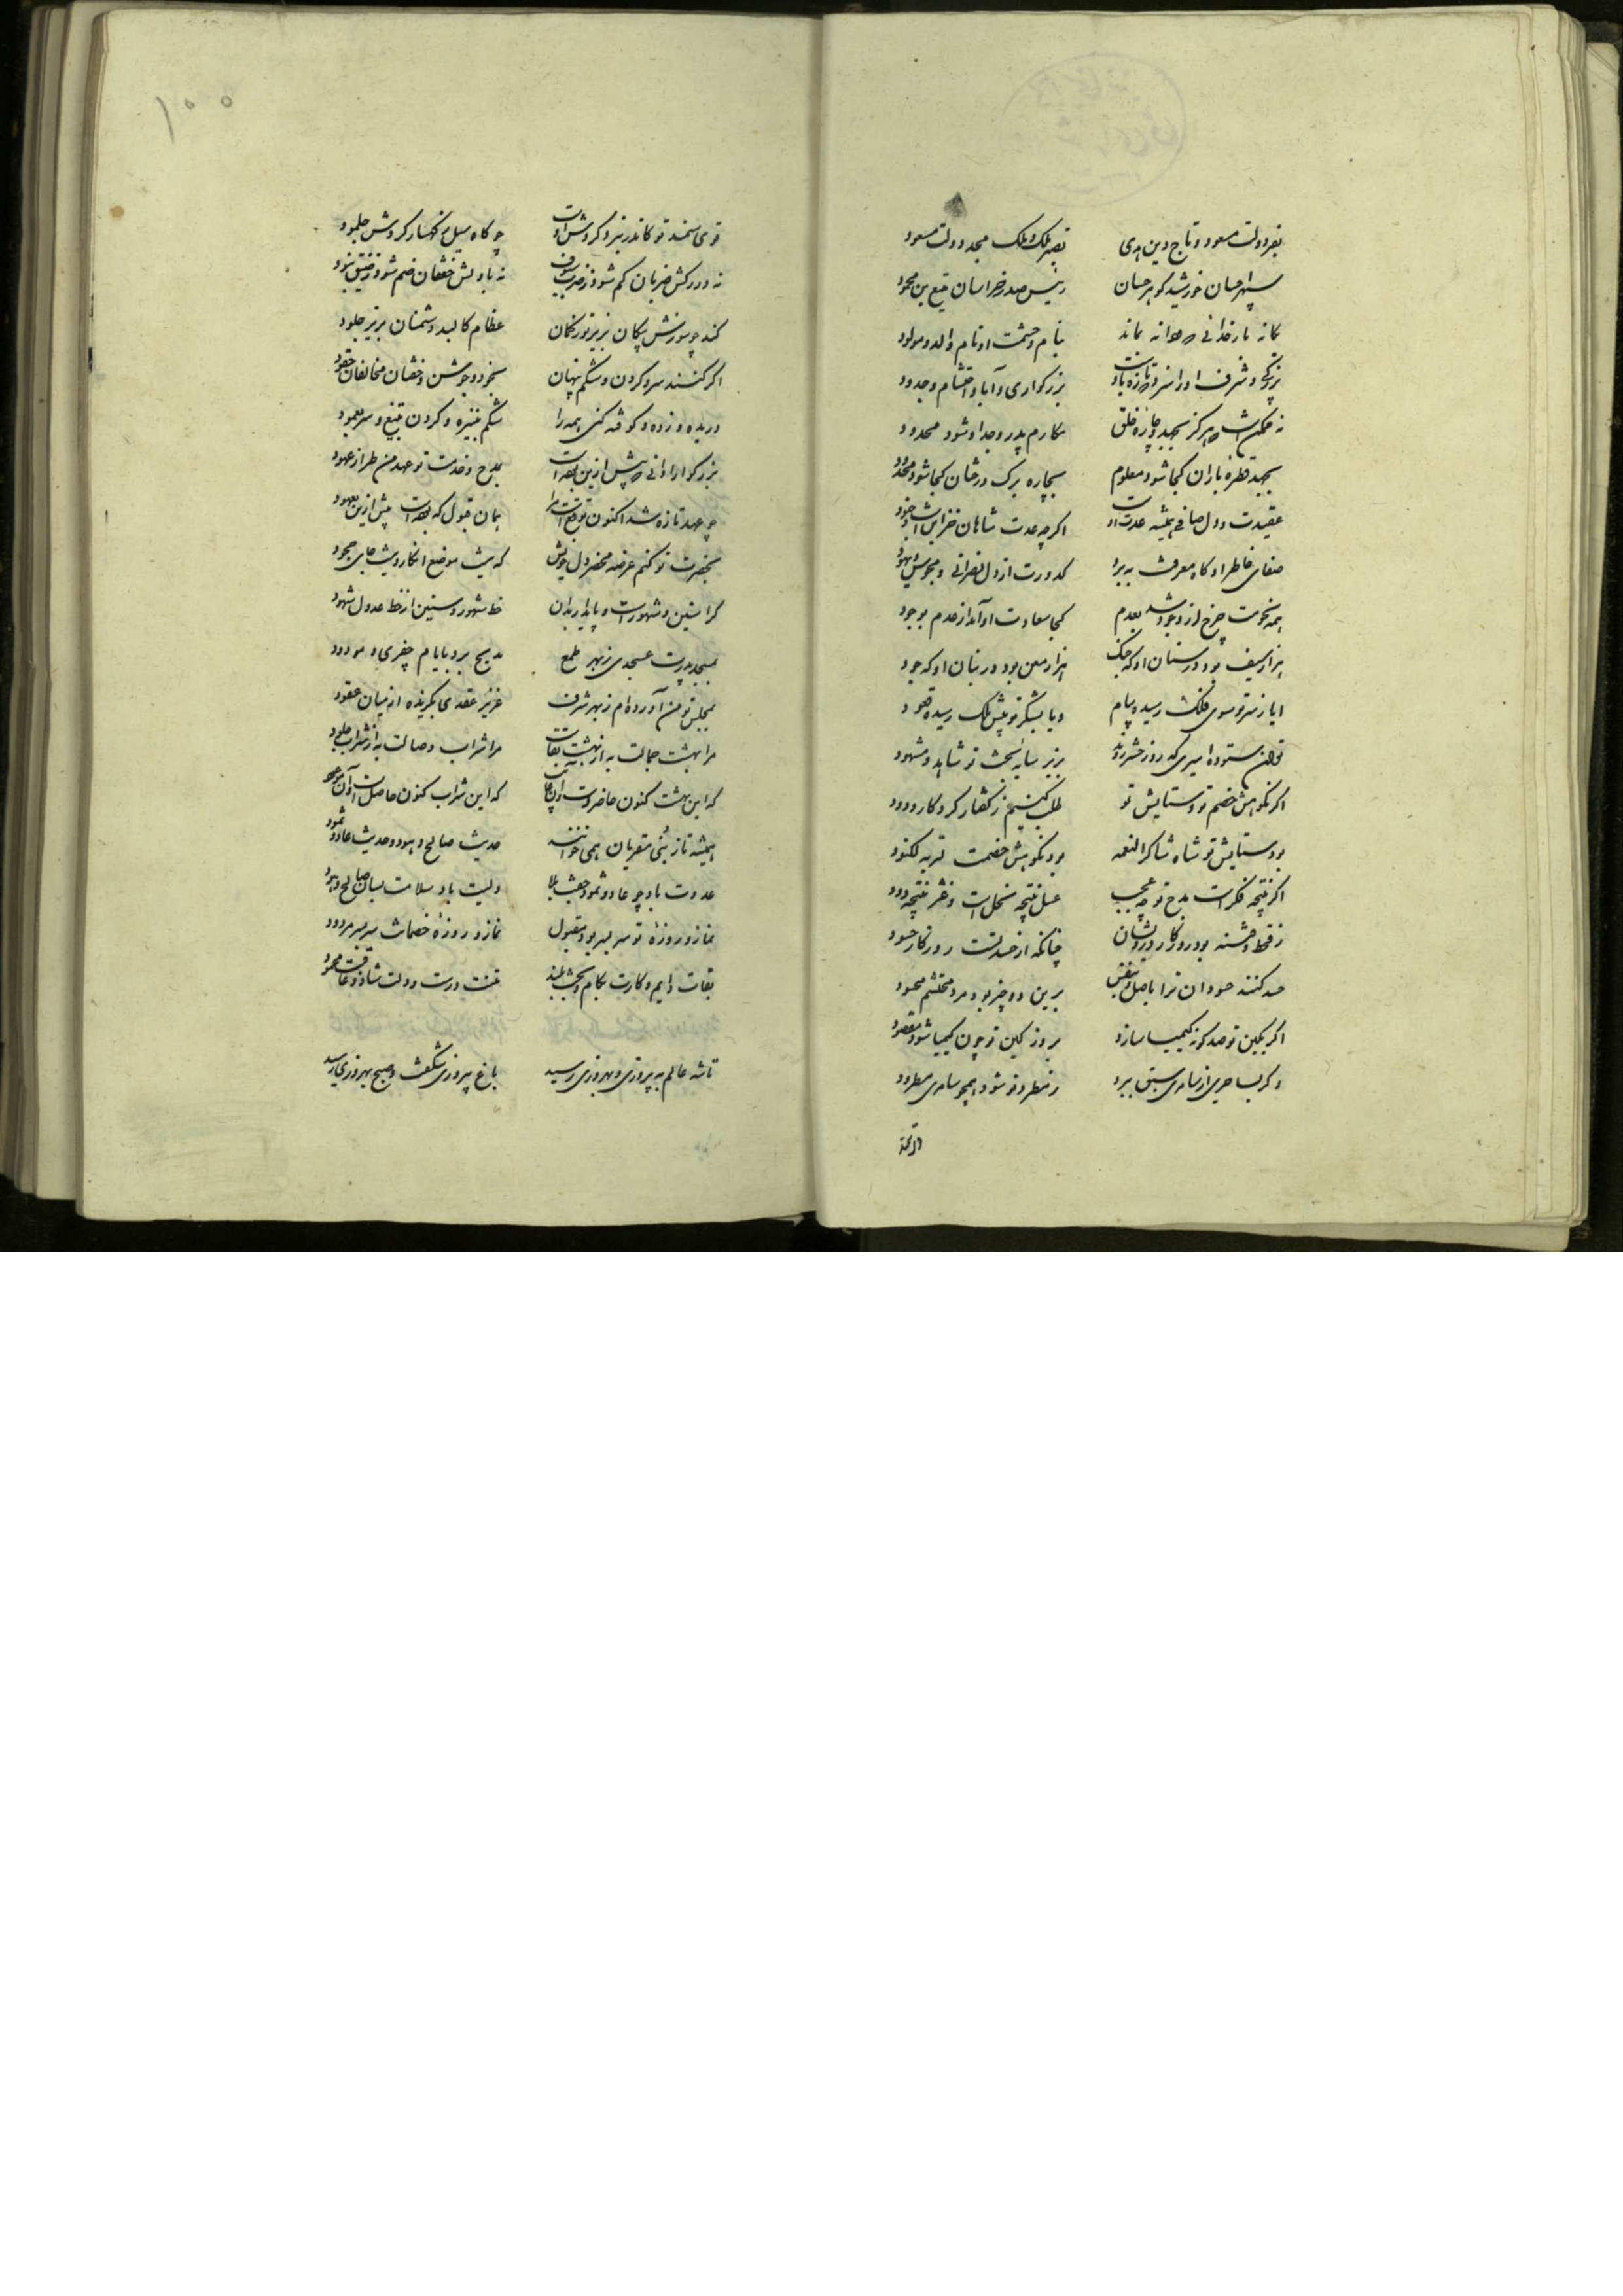 بفر دولت مسعود و تاج دین هدی نصیر ملک و ملک مجد دولت مسعود
سپهر احسان خورشید گوهر حسان رئیس صدر خراسان منیع بن محمود
یگانه بار خدائی یگانه نماند بنام و حشمت او نام والد و مولود
بزرگی و شرف او را سزد بزرکواری و آبا و احتشام و جدود
نه ممکنست که هرگز بجهد و چاره خلق مکارم پدر و جد او شود محدود
بجهد قطره باران کجا شود معلوم بچاره برک درختان کجا شود معدود
عقیدت و دل صافی همیشه عدت اوست اگرچه عدت شاهان خزاین است و جنود
صفای خاطر او گاه معرفت ببرد کدورت از دل نصرانی و مجوس و یهود
همه نحوست چرخ از وجود شد بعدم کجا سعادت او آمد از عدم بوجود
هزار سیف بود در سنان او که جنک هزار معن بود در بنان او که جود
ایا ز سر تو سوی فلک رسیده پیام و یا بشکر تو پیش ملک رسیده
توان ستوده امیری که روز حشر بزیر سایه بخت تو شاهد و مشهود
اگر نکوهش خصم تو و ستایش تو طلب کنیم ز گفتار کردگار ودود
بود ستایش تو شاه شاکرا لانعمه بود نکوهش خصمت لربه لکنود
اگر نتیجه فکر است مدح تو چه عجب عسل نتیجه نحل است و قز نتیجه دود
ز قحط و خشنه بود روزگار درویشان چنانکه از حسد تست روزگار حسود
حسد کنند حسودان ترا باصل و بنفس برین دو چیز بود مرد محتشم محسود
اگر بکین تو صد گونه کیمیا سازد بروز کین تو چون کیمیا شود مفقود
و گر بساحری از سامری سبق ببرد ز مطرد تو شود همچو سامری مطرود
قوی سمند تو کاندر نبرد گردش اوست چو گاه سیل ز کهسار گردش جلمود
نه در رکش ضربان کم شود ز ضرب سیوف نه با دلش خفقان ضم شود ز خفق بنود
کند چو سوزنش پیکان بزیر توز کمان عظام کالبد دشمنان بزیر جلود
اگر کنند سر و گردن و شکم پنهان بخود و جوشن و خفتان مخالفان حقود
دریده و زده و کوفته کنی همه را شکم بنیزه و گردن بتیغ و سر بعمود
بزرگوارا دانی که پیش ازین بمدح و خدمت تو عهد من طراز عهود
چو عهد تازه شد اکنون توقع است مرا همان قبول که بوده است پیش ازین معهود
بحضرت تو کنم عرضه محضر دل خویش که نیست موضع انکار و نیست جای جحود
کرا سنین و شهورست و پایدار بدان خط شهور و سنین از خط عدول شهود
بمجلس پدرت عسجدی ز بهر طمع مدیح برد بایام جغری و مودود
بمجلس تو من آورده‌ام ز بهر شرف عزیز عقدی بگزیده از میان عقود
مرا بهشت جمالت به از بهشت بقات مرا شراب وصالت به از شراب خلود
که این بهشت کنون حاضرست و آن غایب که این شراب کنون حاصلست و آن موعود
همیشه تا ز نبی مقریان همی خوانند حدیث صالح و هود و حدیث عاد و ثمود
عدوت باد چو عاد و ثمود جفت بلا ولیت باد سلامت بسان صالح و هود
نماز و روزهٔ تو سر بسر بود مقبول نماز و روزهٔ خصمانت سربسر مردود
بقات دایم و کارت بکام و بخت بلند تنت درست و دولت شاد و عاقبت محمود
تا شه عالم به پیروزی و بهروزی رسید باغ پیروزی شکفت و صبح بهروزی رسید